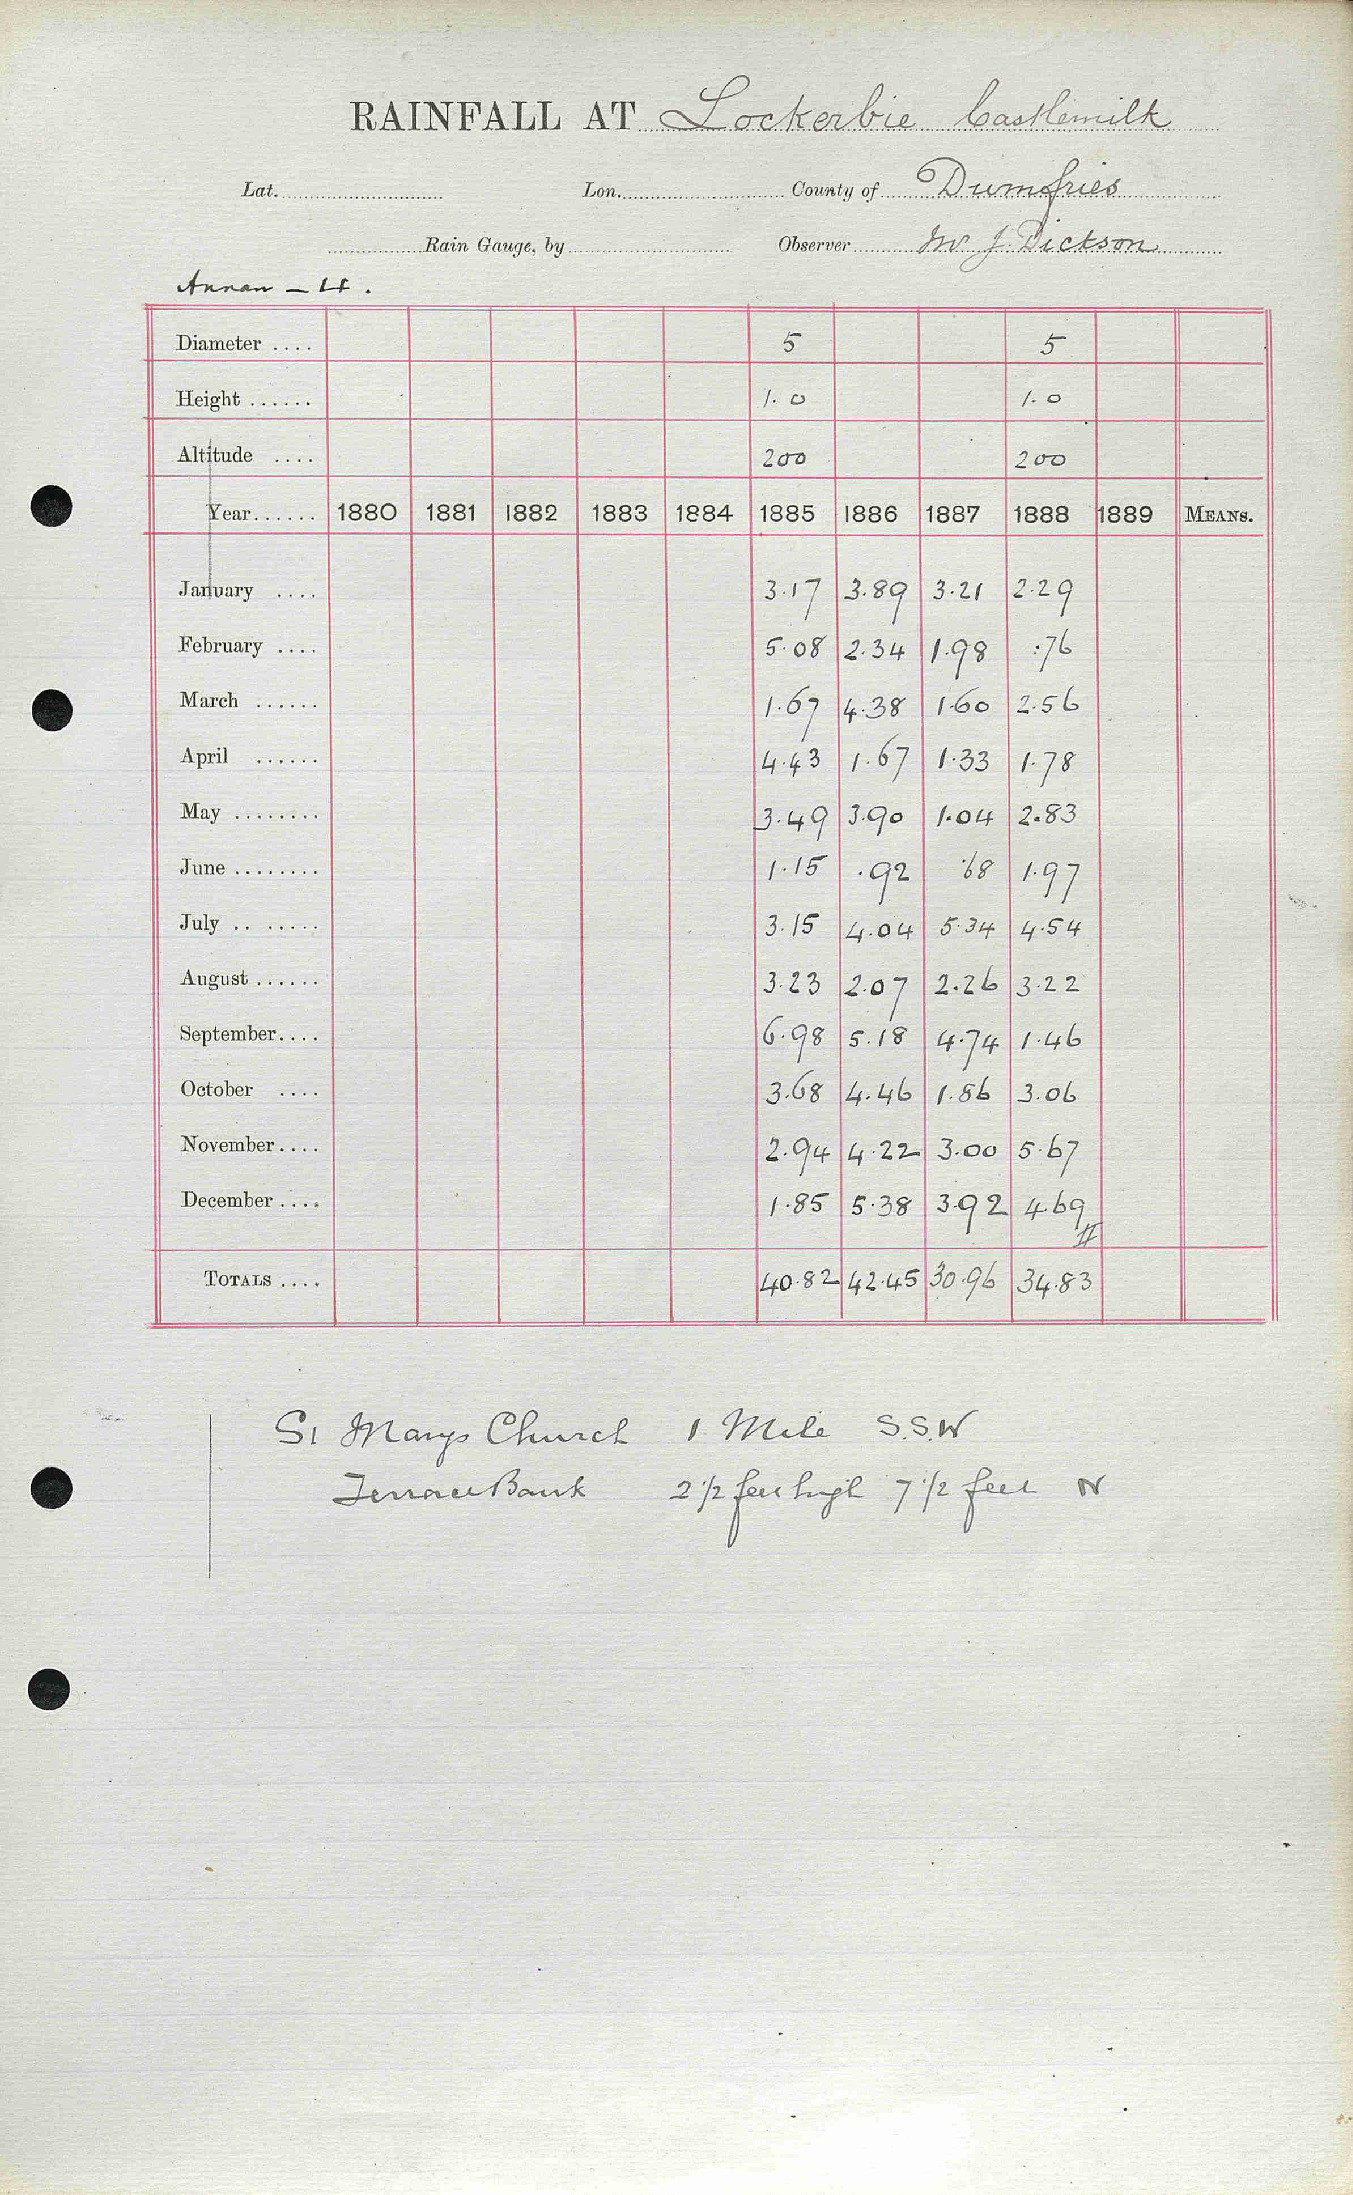 RAINFALL AT Lockerbie Castlemilk
Lat. Lon. County of Dumfries
Rain Gauge, by Observer Mr J. Dickson
Annan – 4.
Diameter .... 5 5
Height ...... 1.0 1.0
Altitude .... 200 200
Year...... 1880 1881 1882 1883 1884 1885 1886 1887 1888 1889 MEANS.
January .... 3.17 3.89 3.21 2.29
February .... 5.08 2.34 1.98 .76
March ...... 1.67 4.38 1.60 2.56
April ...... 4.43 1.67 1.33 1.78
May ........ 3.49 3.90 1.04 2.83
June ........ 1.15 .92 .68 1.97
July .. ...... 3.15 4.04 5.34 4.54
August ...... 3.23 2.07 2.26 3.22
September.... 6.98 5.18 4.74 1.46
October .... 3.68 4.46 1.86 3.06
November.... 2.94 4.22 3.00 5.67
December .... 1.85 5.38 3.92 4.69
TOTALS .... 40.82 42.45 30.96 34.83
St Marys Church 1 Mile S.S.W
Terrace Bank 2 1/2 feet high 7 1/2 feet N